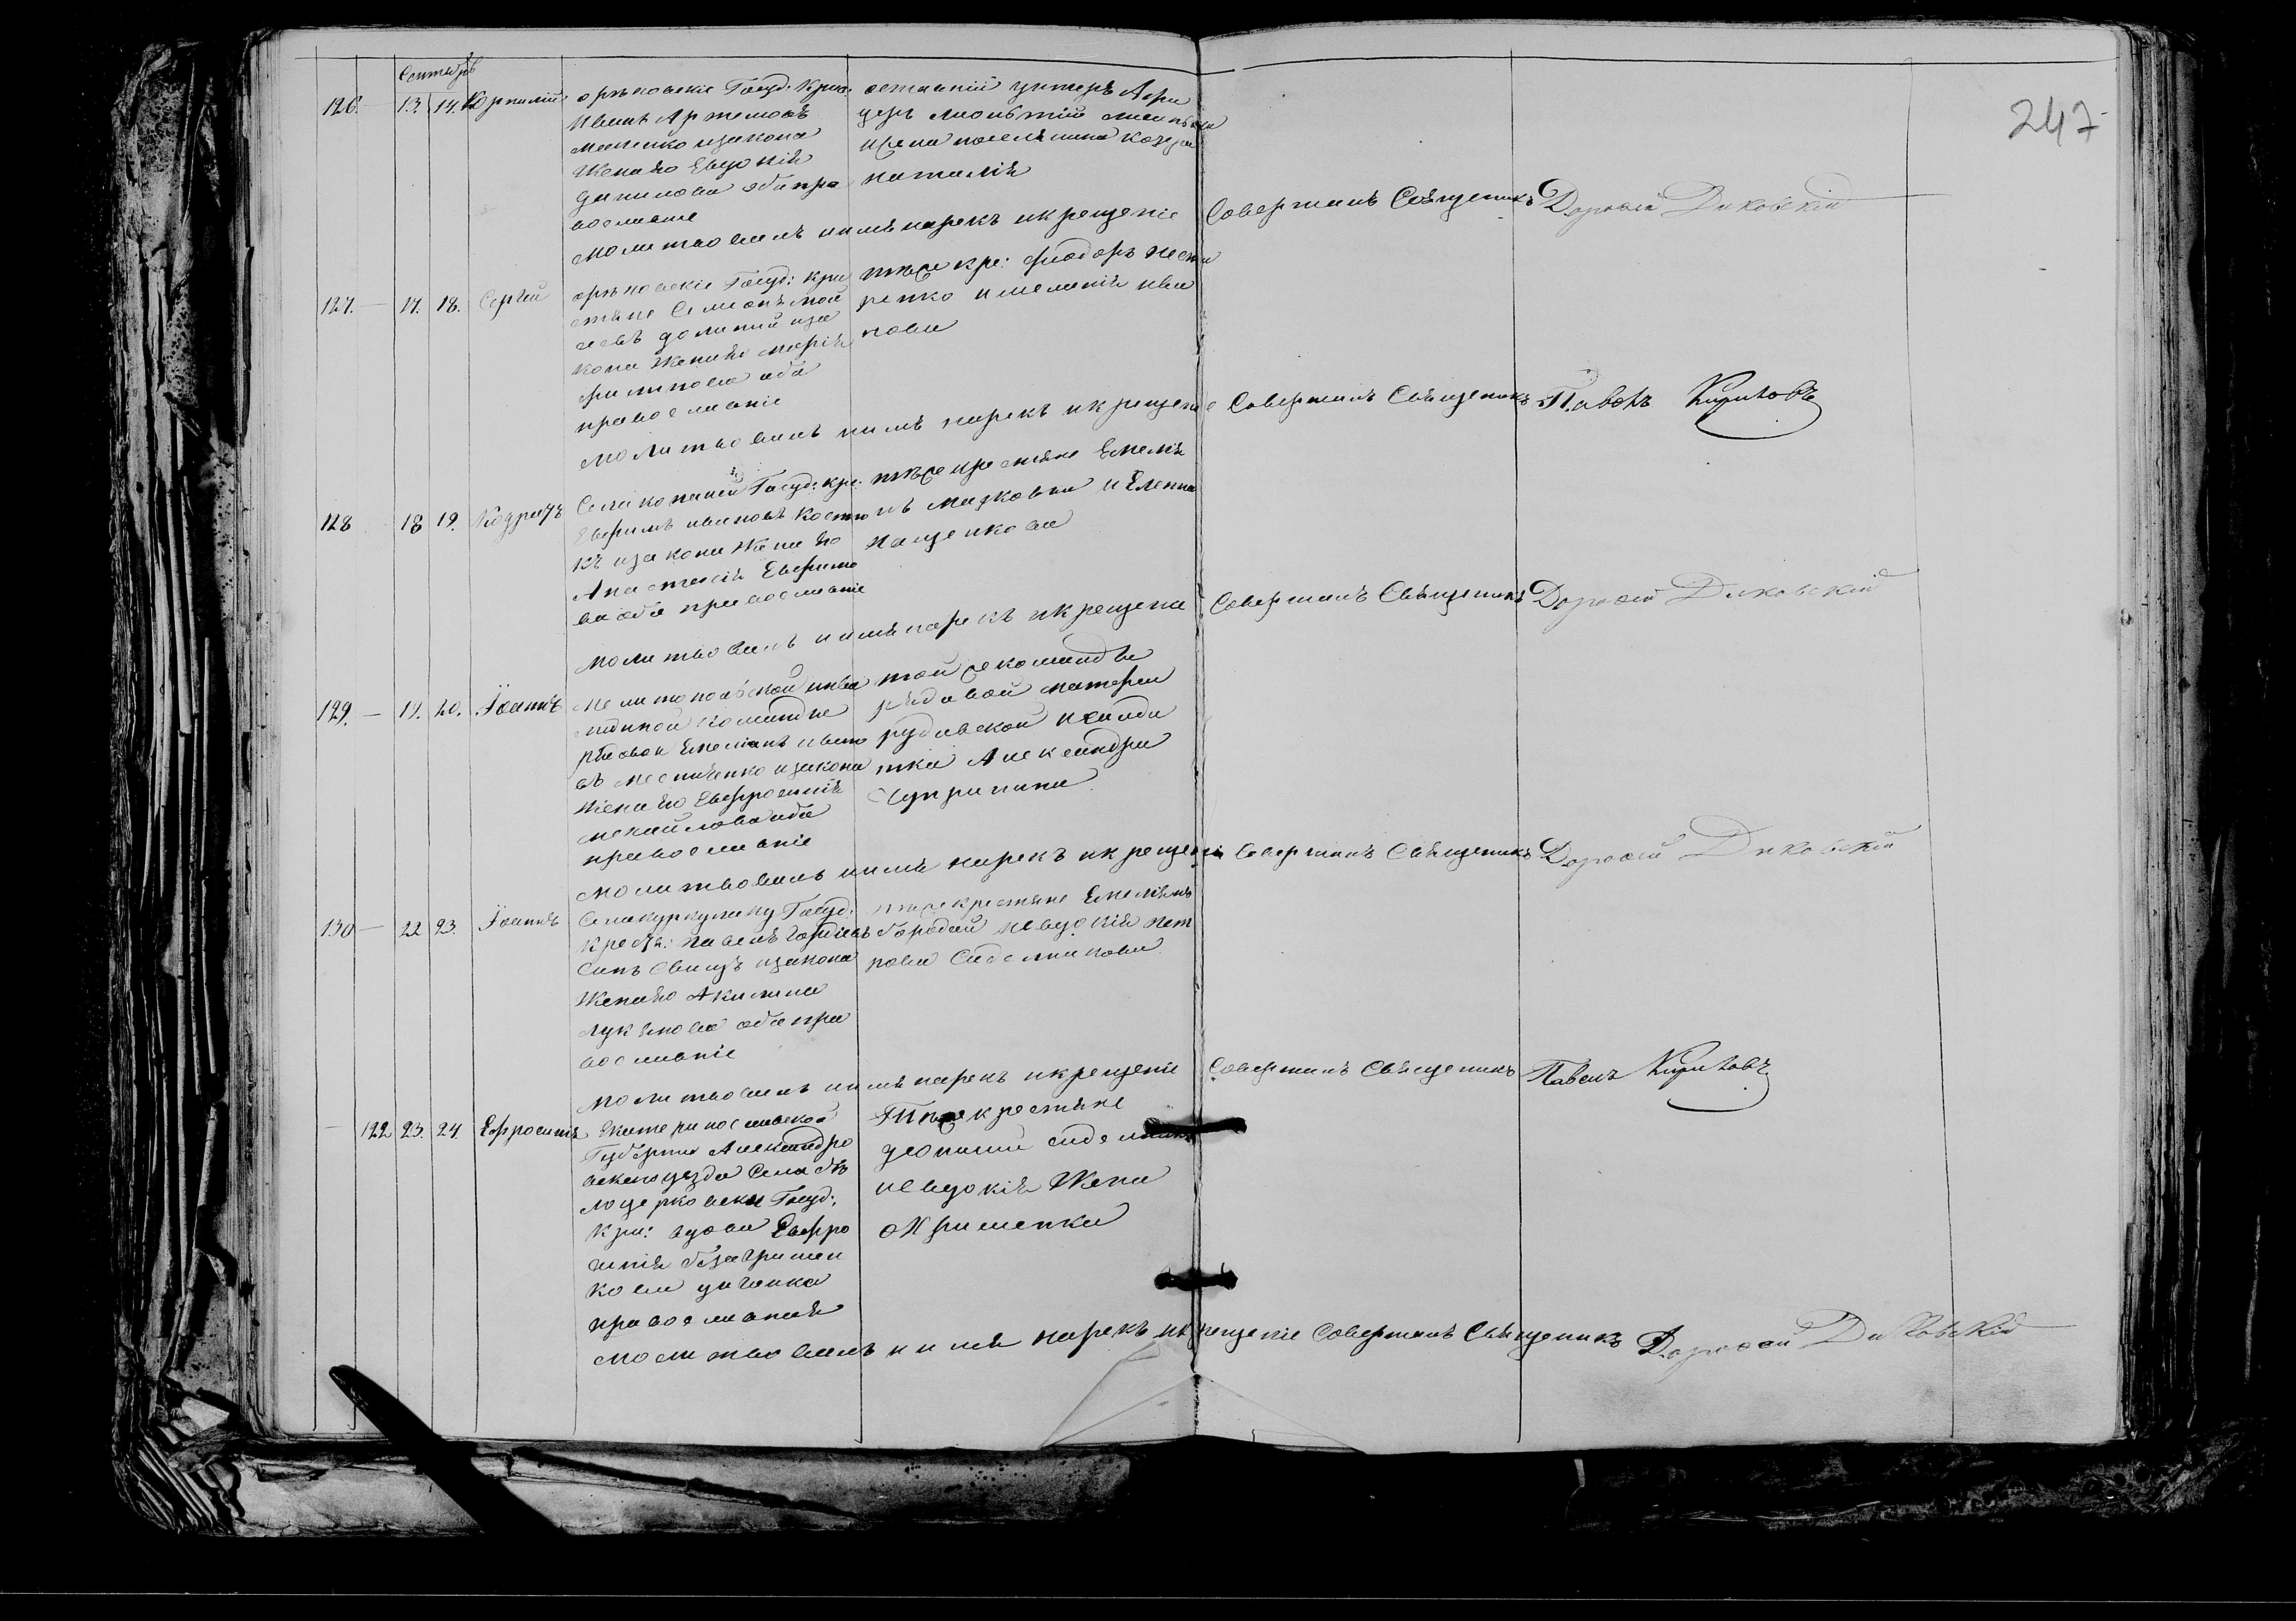 Сентябрь
247
126. 13. 14. Корнилій
орѣховскіе Госуд: Крес:
Иванъ Артемовъ
законна
Жена его Евдокія
данилова оба пра
вославные
отставній унтеръ Афи
церъ
поселянина
наталія
молитвовалъ и имя нарекъ и крещеніе Совершилъ Священикъ Дорофей Диковскій
127. — 17. 18. Сергій
орѣховскіе Госуд: Кри
стяне Семенъ мой
сеевъ долгій иза
кона Жена его марія
филипова оба
православніе
тѣже кре: Феодоръ несте
ренко имеланія ива
нова
молитвовалъ и имя нарекъ и крещеніе Совершилъ Священикъ Павелъ Кириловъ
128 18 19. Кодратъ
Госуд: кре:
Евфимъ ивановъ Костю
къ изакона Жена его
Анастасія Евфимо
ва оба православніе
тѣже крестяне Емелія
нъ и Елена
Пащенкова
молитвовалъ и имя нарекъ и крещеніе Совершилъ Священикъ Дорофей Диковскій
129. — 19. 20. Іоаннъ
мелитопольской инва
лидной команды
рядовой Емелианъ ивано
въ изакона
Жена его Евфросинія
михайлова оба
православніе
тойже команды
рядовой
рудавской исолда
тка Александра
Чупринина
молитвовалъ и имя нарекъ и крещеніе Совершилъ Священикъ Дорофей Диковскій
130 — 22 23. Іоаннъ
Села куркулаку Госуд:
крестя: павелъ Гордіевъ
сынъ изакона
Жена его Акилина
лукянова оба пра
вославніе
тѣже крестяне Емелянъ
бородай иевдокія пет
рова Сидельникова
молитвовалъ и имя нарекъ и крещеніе Совершилъ Священикъ Павелъ Кириловъ
— 122 23. 24. Ефросинія
Екатеринославской
Губерніи Александро
вскаго уезда Села бѣ
лоцерковски Госуд:
Кри: вдова Евфро
синія
кова дичинка
православная
Тѣже крестяне
иевдокія Жена
охрименка
молитвовалъ и имя нарекъ и крещеніе Совершилъ Священикъ Дорофей Диковскій